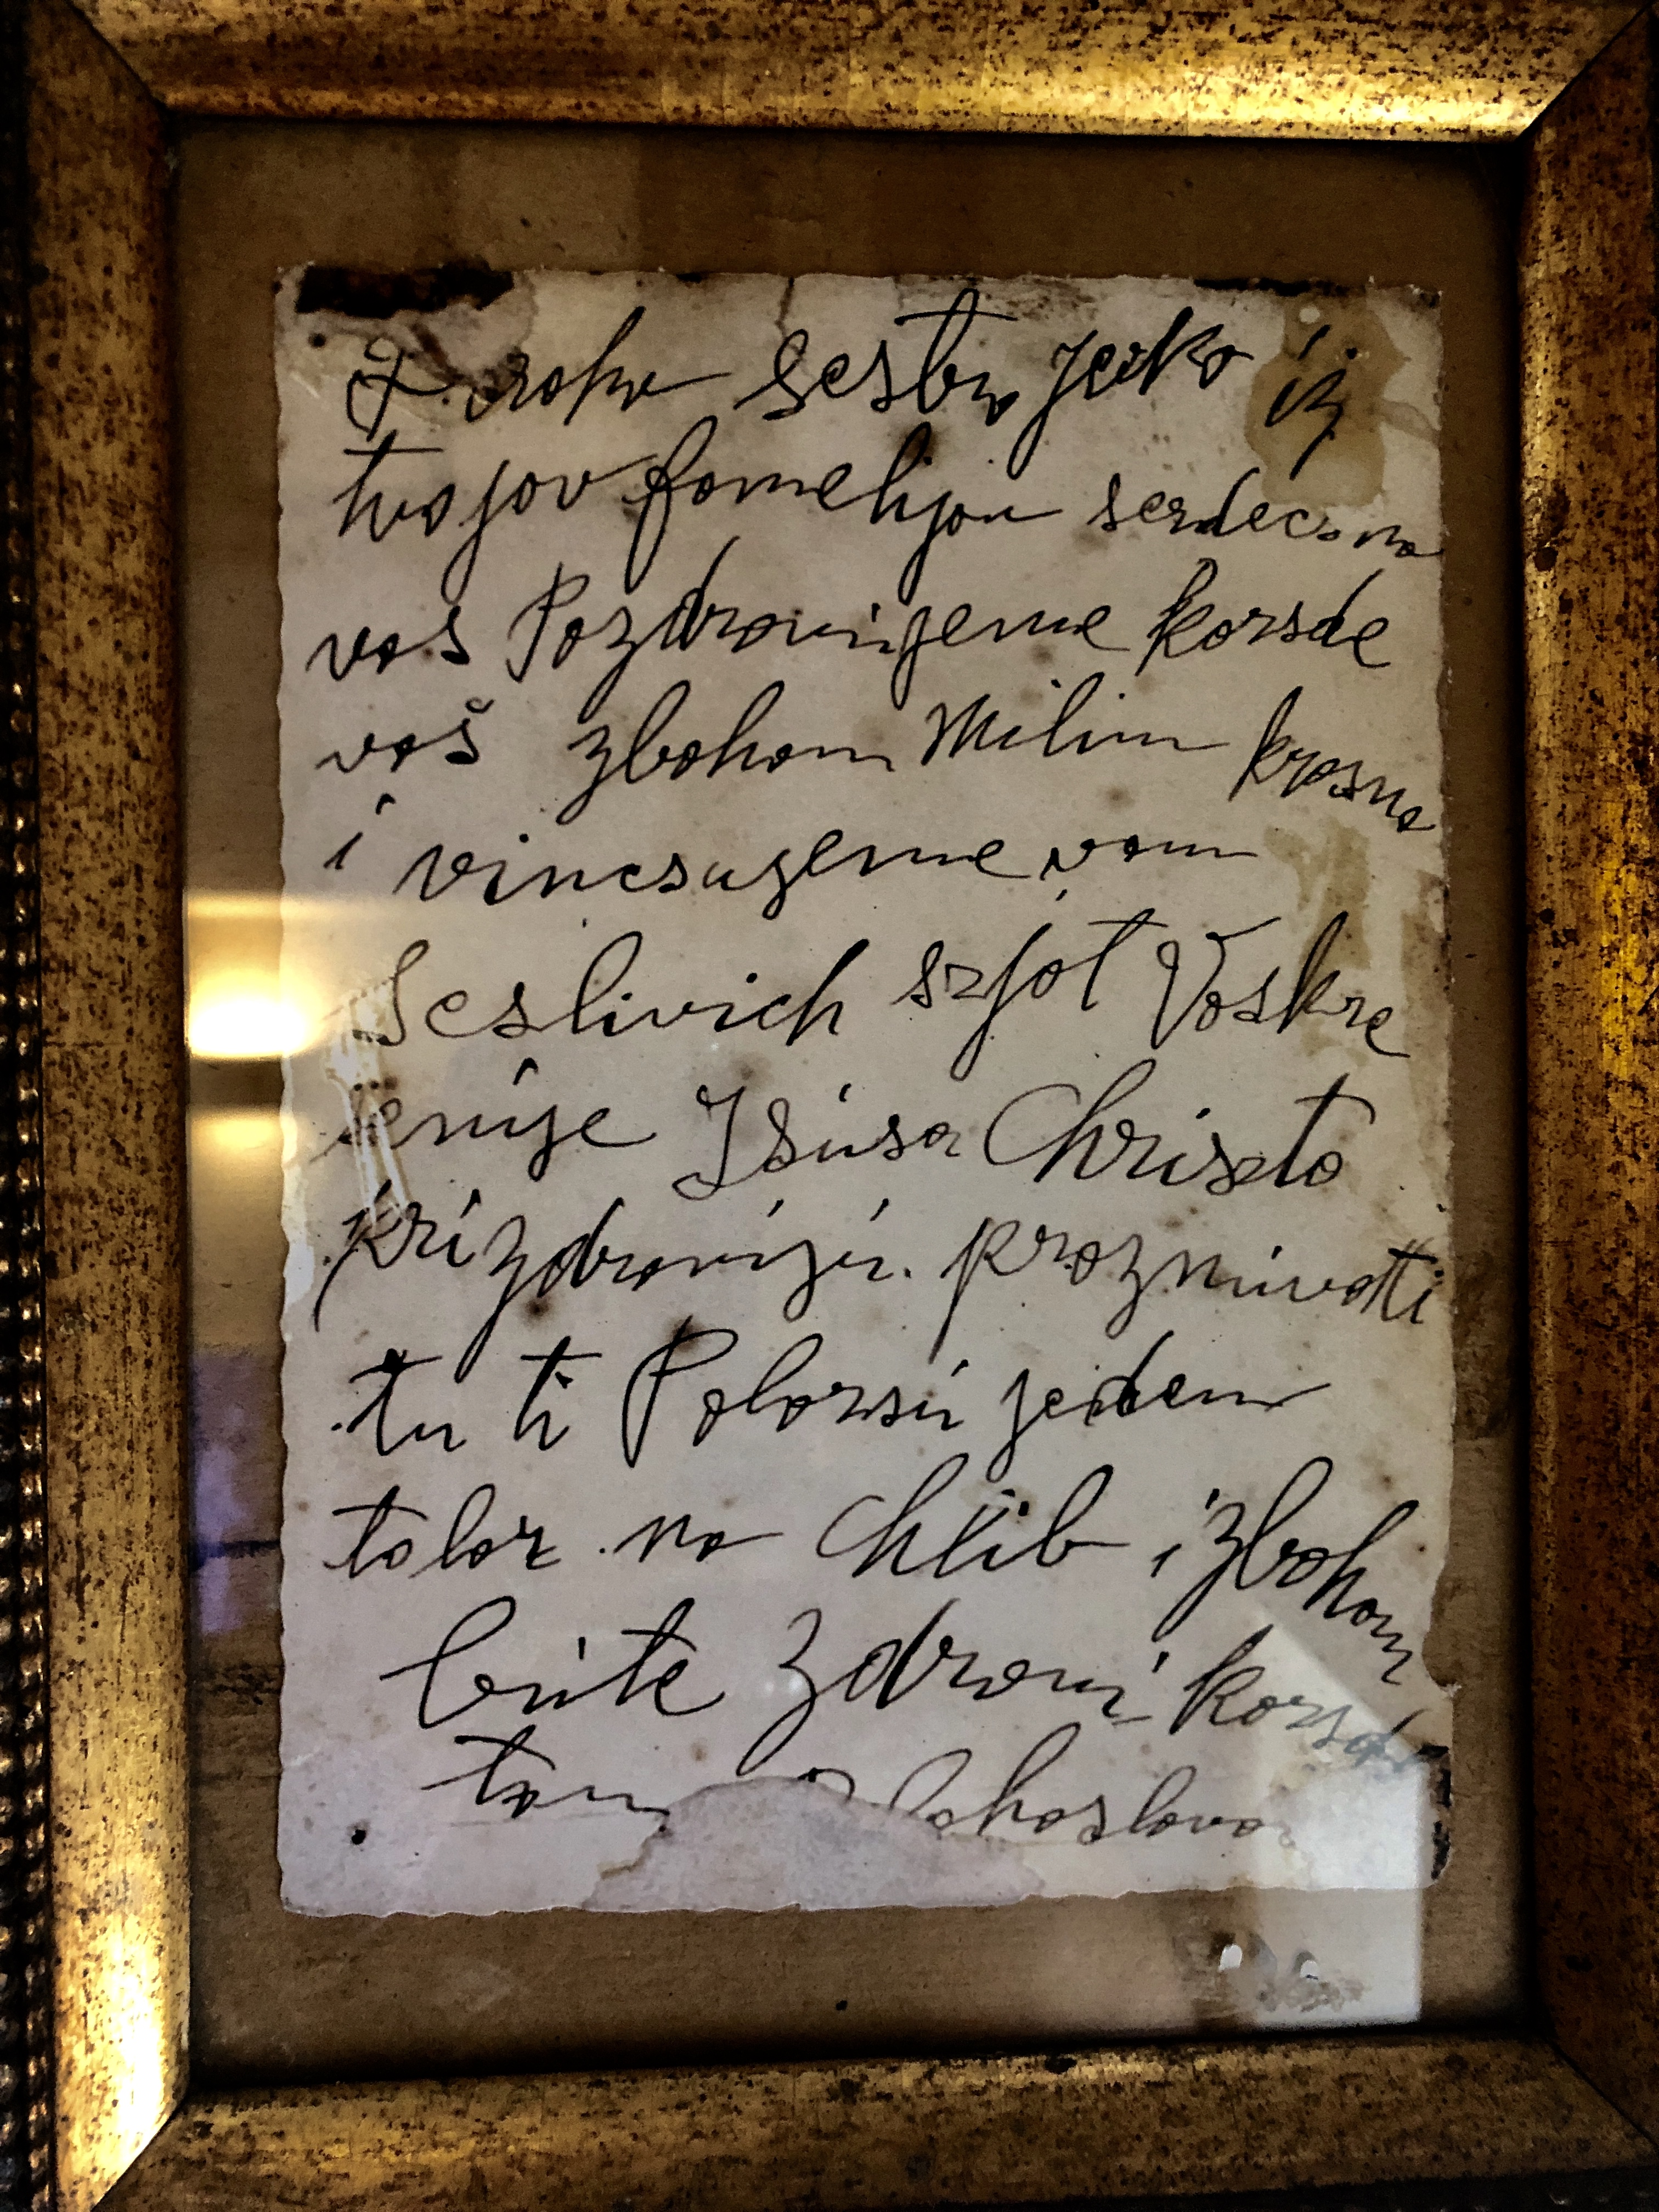 Draha sestra Jecko iz
tvojov fomelijov serdecsno
vas Pozdravijeme korsde
vaš zbohom Milim krasno
i vincsujeme vam
Scslivich szfot Voskre
senije Isusa Chriszta
pri zdraviju. praznuvati
tu ti Polozsu jeden
tolar na chlib i zbohom
bute zdravi korsdo
tam lahoslova